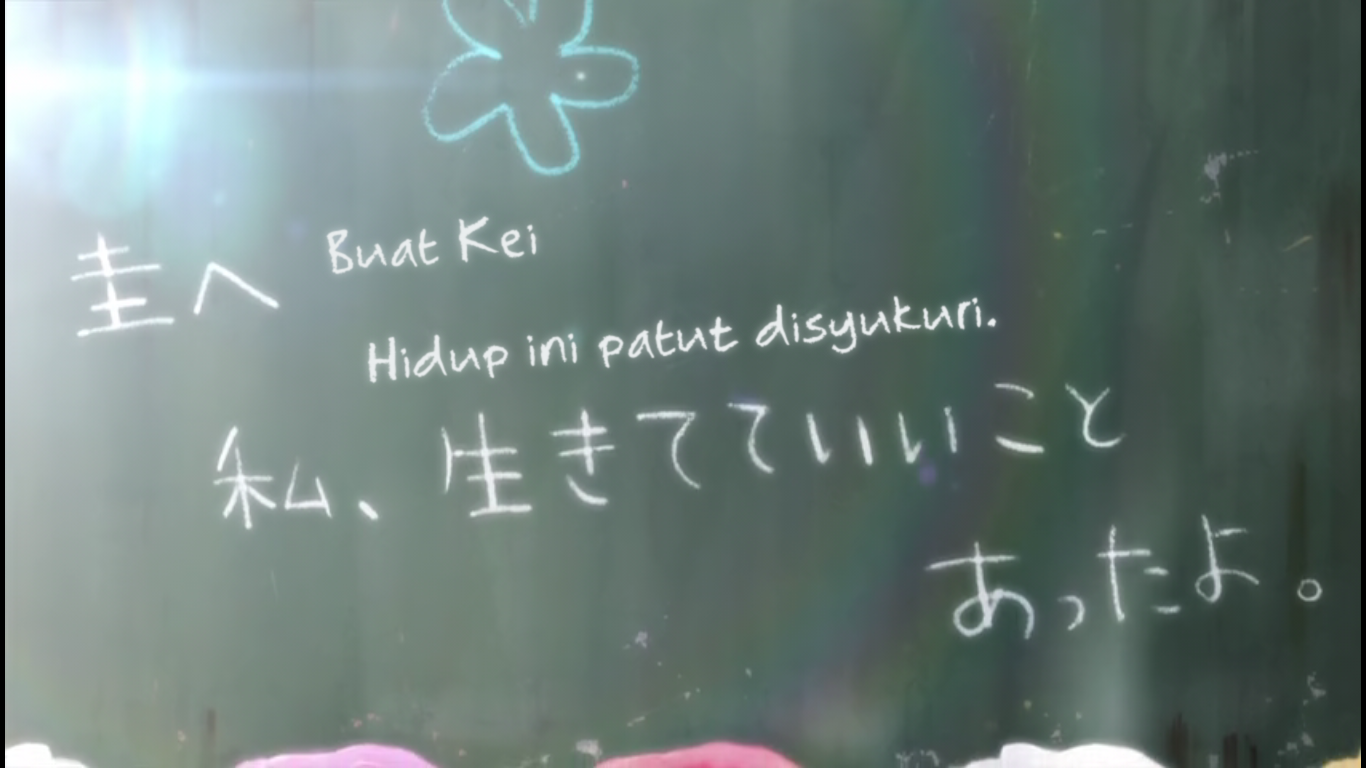 圭へ Buat Kei
Hidup ini patut disyukuri.
私、生きてていいこと
あったよ。